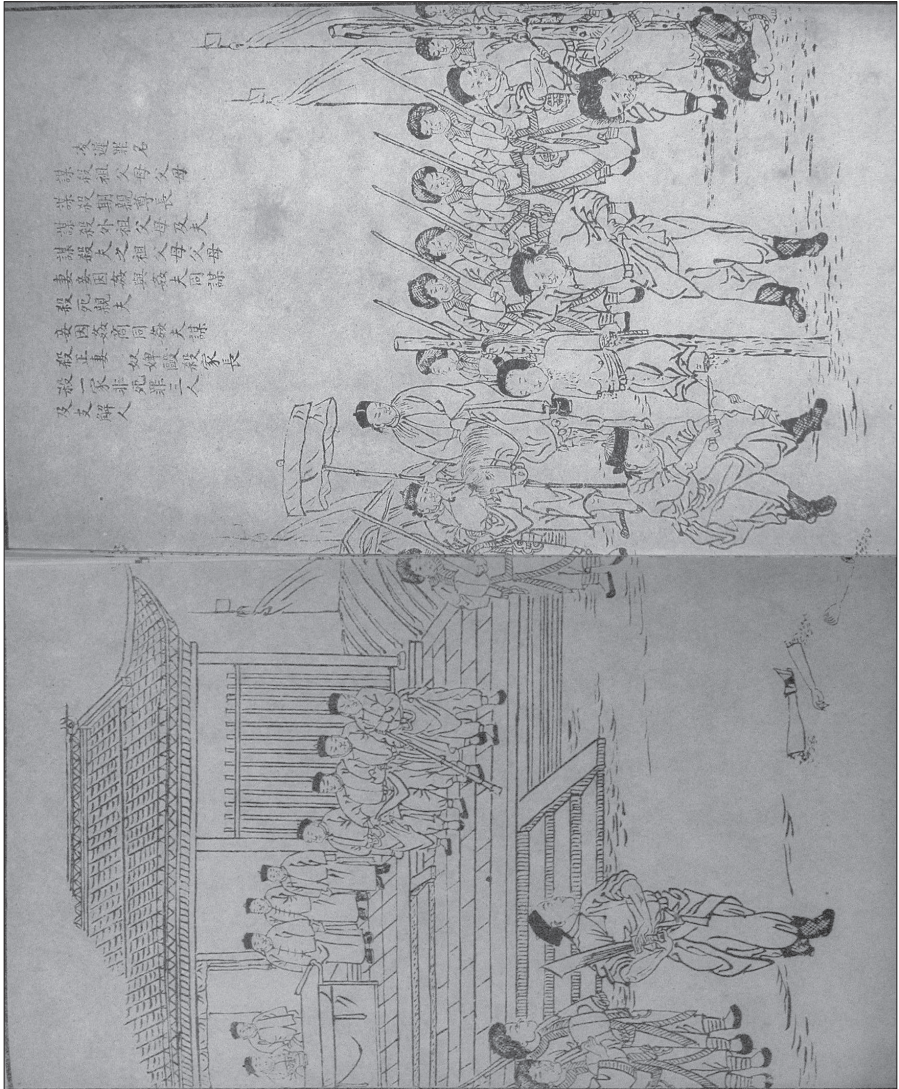 凌遲罪名
謀殺祖父母父母
謀殺期親尊長
謀殺外祖父母及夫
謀殺夫之祖父母父母
妻妾因姦與姦夫同謀
殺死親夫
妾因姦商同姦夫謀
殺正妻 奴婢毆殺家長
殺一家非死罪三人
及支解人